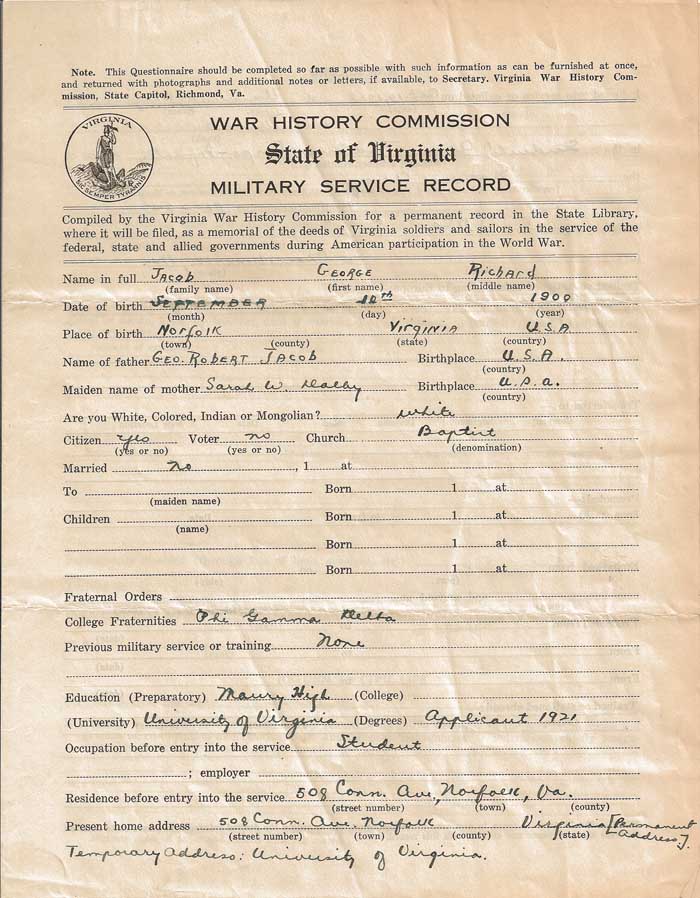 Note. This Questionnaire should be completed so far as possible with such information as can be furnished at once,
and returned with photographs and additional notes or letters, if available, to Secretary. Virginia War History Com-
mission, State Capitol, Richmond, Va.
VIRGINIA
SIC SEMPER TYRANNIS
WAR HISTORY COMMISSION
State of Virginia
MILITARY SERVICE RECORD
Compiled by the Virginia War History Commission for a permanent record in the State Library,
where it will be filed, as a memorial of the deeds of Virginia soldiers and sailors in the service of the
federal, state and allied governments during American participation in the World War.
Name in full Jacob George Richard
(family name) (first name) (middle name)
Date of birth September 10th 1900
(month) (day) (year)
Place of birth Norfolk Virginia USA
(town) (county) (state) (country)
Name of father Geo. Robert Jacob Birthplace U.S.A.
(country)
Maiden name of mother Sarah W. Dalby Birthplace U.S.A.
(country)
Are you White, Colored, Indian or Mongolian? White
Citizen yes Voter no Church Baptist
(yes or no) (yes or no) (denomination)
Married No , 1 at
To Born 1 at
(maiden name)
Children Born 1 at
(name)
Born 1 at
Born 1 at
Fraternal Orders
College Fraternities Phi Gamma Delta
Previous military service or training None
Education (Preparatory) Maury High (College)
(University) University of Virginia (Degrees) Applicant 1921
Occupation before entry into the service Student
; employer
Residence before entry into the service 508 Conn. Ave, Norfolk, Va.
(street number) (town) (county)
Present home address 508 Conn. Ave. Norfolk Virginia [Permanent Address].
(street number) (town) (county) (state)
Temporary Address: University of Virginia.